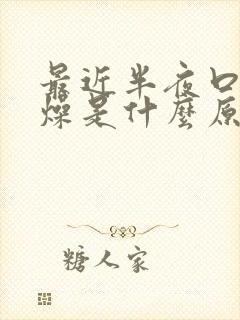 最近半夜口
燥是什麼原
糖人家